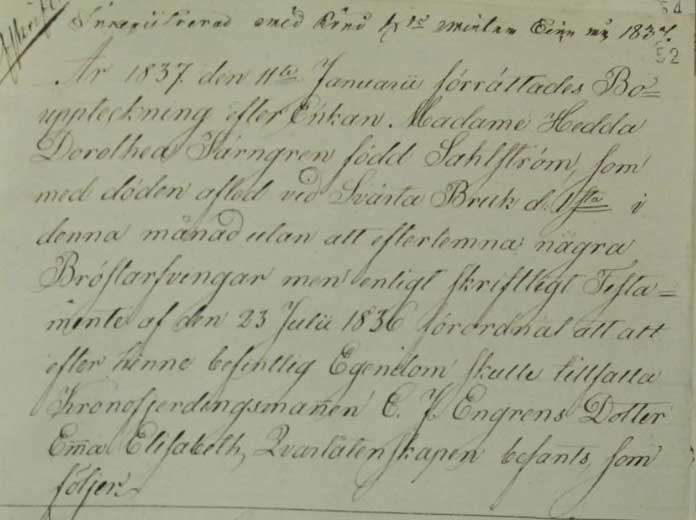 54
52
183
År 1837 den 11te Januarii förrättades Bo=
uppteckning efter Enkan Madame Hedda
Dorothea Kärngren född Sahlström, som
med döden afled vid Svärta Bruk d. 1sta i
denna månad utan att efterlemna några
Bröstarfvingar men enligt skriftligt Testa=
mente af den 23 Julii 1836 förordnat att alt
efter henne befintlig Egendom skulle tillfalla
Kronofjerdingsmannen C. J. Engrens Dotter
Em̄a Elisabeth, Qvarlåtenskapen befants, som
följer